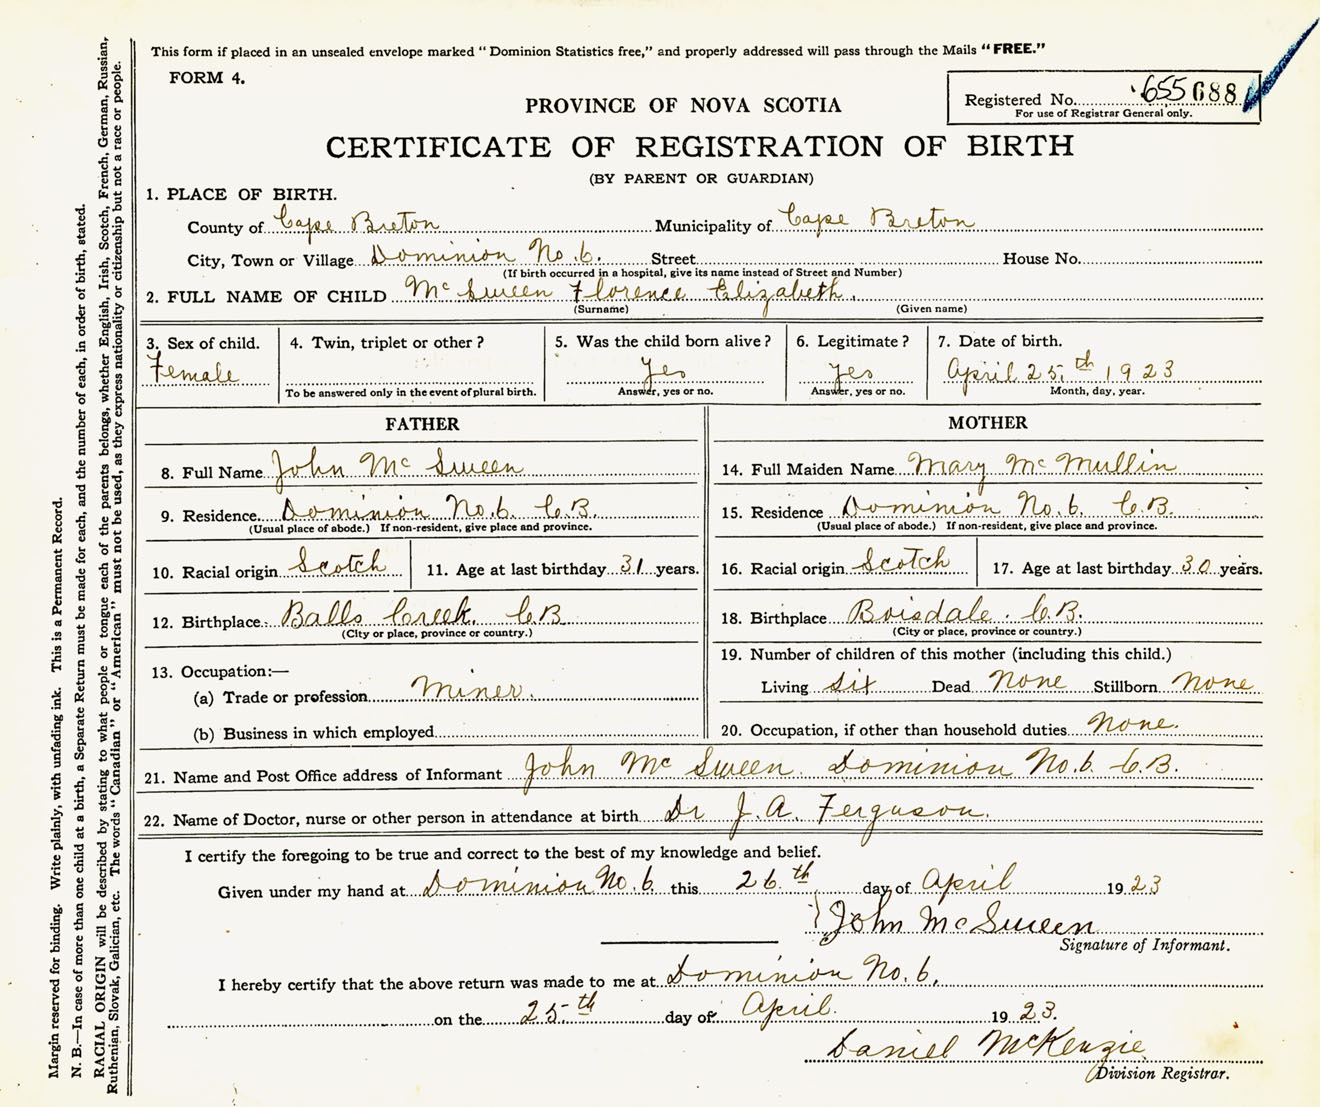 This form if placed in an unsealed envelope marked "Dominion Statistics free," and properly addressed will pass through the Mails "FREE."
FORM 4.
Registered No. 655688
For use of Registrar General only.
PROVINCE OF NOVA SCOTIA
CERTIFICATE OF REGISTRATION OF BIRTH
(BY PARENT OR GUARDIAN)
1. PLACE OF BIRTH.
County of Cape Breton Municipality of Cape Breton
City, Town or Village Dominion No. 6. Street House No.
(If birth occurred in a hospital, give its name instead of Street and Number)
2. FULL NAME OF CHILD Mc Sween Florence Elizabeth.
(Surname) (Given name)
3. Sex of child. 4. Twin, triplet or other? 5. Was the child born alive? 6. Legitimate? 7. Date of birth.
Female Yes Yes April 25th 1923
To be answered only in the event of plural birth. Answer, yes or no. Answer, yes or no. Month, day, year.
FATHER MOTHER
8. Full Name John Mc Sween 14. Full Maiden Name Mary Mc Mullin
9. Residence Dominion No. 6. C.B. 15. Residence Dominion No. 6. C.B.
(Usual place of abode.) If non-resident, give place and province. (Usual place of abode.) If non-resident, give place and province.
10. Racial origin Scotch 11. Age at last birthday 31 years. 16. Racial origin Scotch 17. Age at last birthday 30 years.
12. Birthplace Balls Creek. C.B. 18. Birthplace Boisdale. C.B.
(City or place, province or country.) (City or place, province or country.)
13. Occupation:— 19. Number of children of this mother (including this child.)
(a) Trade or profession Miner. Living Six Dead None Stillborn None
(b) Business in which employed 20. Occupation, if other than household duties None.
21. Name and Post Office address of Informant John Mc Sween. Dominion No. 6. C.B.
22. Name of Doctor, nurse or other person in attendance at birth Dr J. A. Ferguson.
I certify the foregoing to be true and correct to the best of my knowledge and belief.
Given under my hand at Dominion No. 6. this 26.th day of April 1923
John McSween
Signature of Informant.
I hereby certify that the above return was made to me at Dominion No. 6.
on the 25th day of April. 1923.
Daniel McKenzie
Division Registrar.
Margin reserved for binding. Write plainly, with unfading ink. This is a Permanent Record.
N. B.—In case of more than one child at a birth, a Separate Return must be made for each, and the number of each, in order of birth, stated.
RACIAL ORIGIN will be described by stating to what people or tongue each of the parents belongs, whether English, Irish, Scotch, French, German, Russian,
Ruthenian, Slovak, Galician, etc. The words "Canadian" or "American" must not be used, as they express nationality or citizenship but not a race or people.